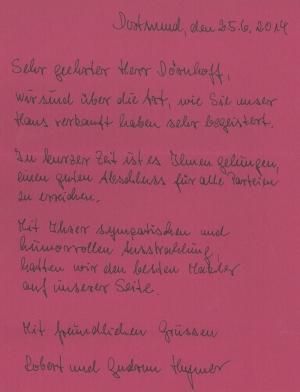 Dortmund, den 25.6.2014
Sehr geehrter Herr Dörnhoff,
wir sind über die Art, wie Sie unser
Haus verkauft haben sehr begeistert.
In kurzer Zeit ist es Ihnen gelungen,
einen guten Abschluss für alle Parteien
zu erreichen.
Mit Ihrer sympatischen und
humorvollen Ausstrahlung,
hatten wir den besten Makler
auf unserer Seite.
Mit freundlichen Grüssen
Robert und Gudrun